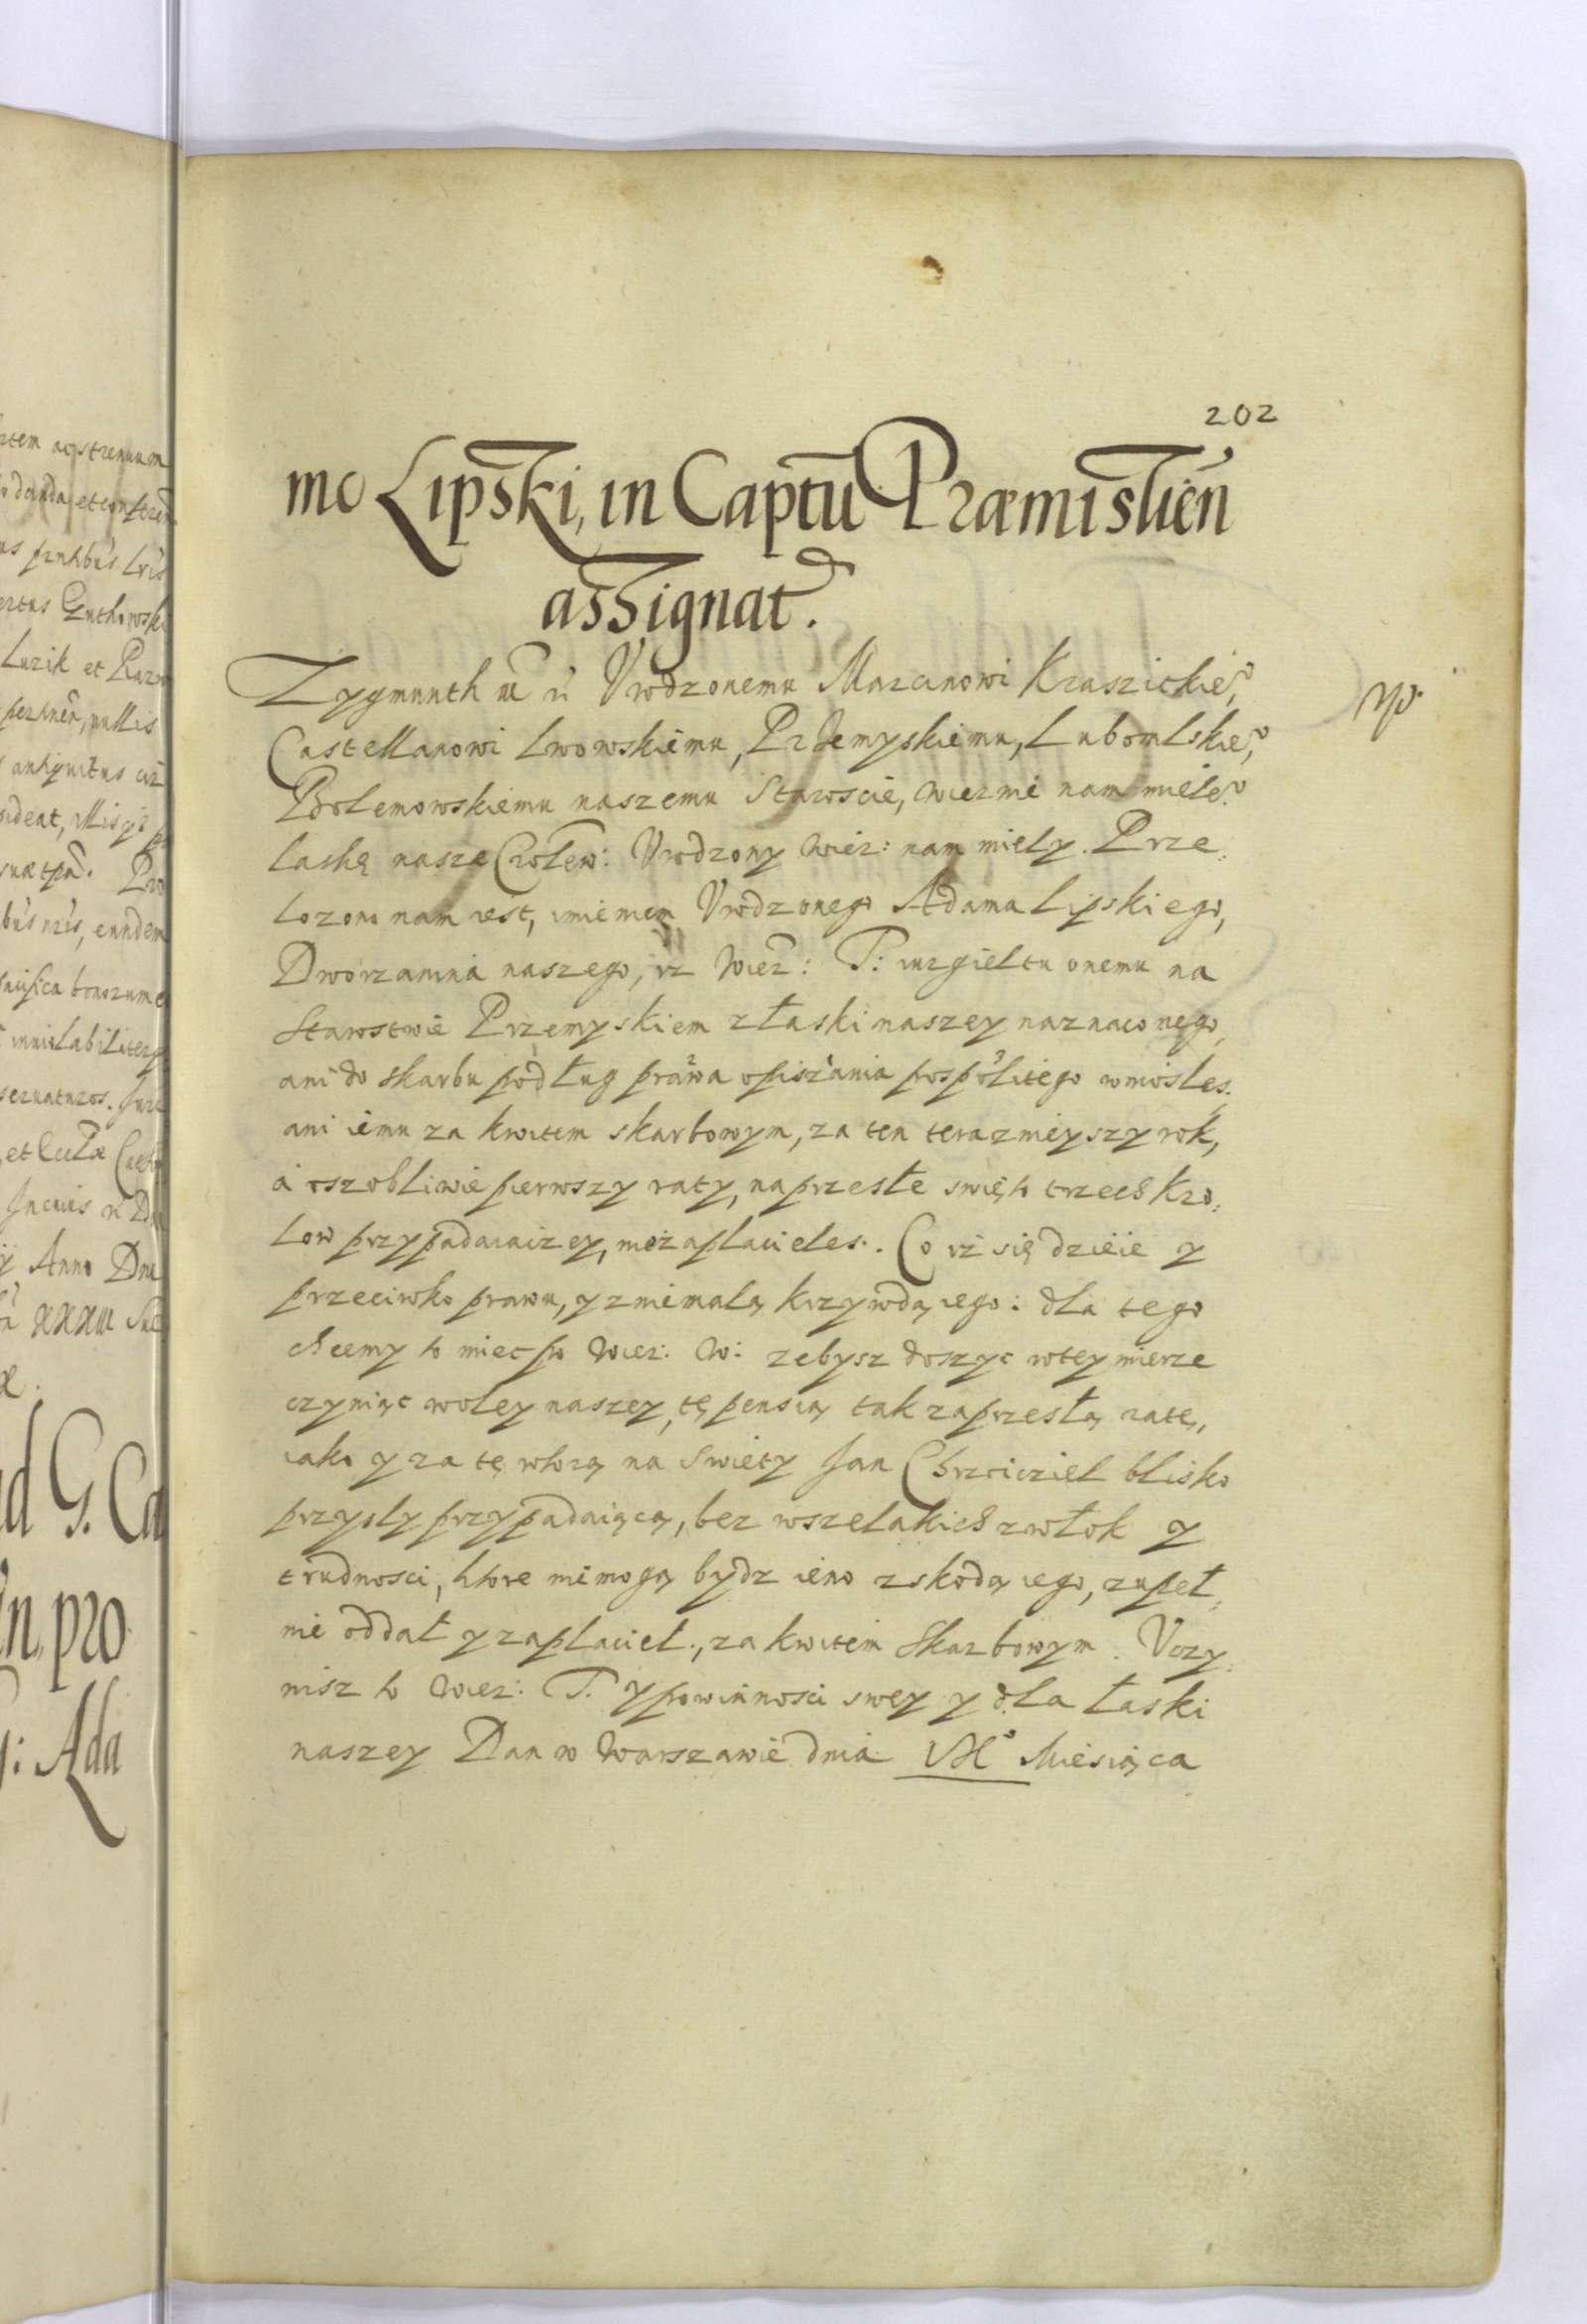 ztem ac strenuum
202
mo Lipski, in Captu Præmislien
assignat.
Zygmunth III etc. Vrodzonemu Marcinowi Kraszickiemo,
Castellanowi Lwowskiemu, Przemyskiemu, Lubomlskieo,
Bolemowskiemu naszemu Staroscie, wiernie nam mieleo
laskę nasze Crolew: Vrodzony wier: nam miely. Prze,
lozono nam iest, imieniem Vrodzonego Adama Lipskiego,
Dworzanina naszego, iz Wier: T: iurgieltu onemu na
Starostwie Przemyskiem z łaski naszey naznaconego,
ani do skarbu podług prawa opisania pospolitego wniosles.
ani iemu za kwitem skarbowym, za ten terazmieyszy rok,
a oszobliwie pierwszy raty, na przeste swięto trzech Kro,
low przypadaiaizey, niezaplacieles. Co iż się dzieie y
przeciwko prawu, y zniemalą krzywdą iego: dla tego
chcemy to miec po wier: W: zebysz doszyc w tey mierze
czyniąc woley naszey, tę pensią tak za przestą ratę,
iako y za tę wtorą na Swiety Jan Chrzcicziel blisko
przysly przypadaiącą, bez wszelakich zwłok y
trudnosci, ktore niemogą bydz ieno z skodą iego, zupeł,
nie oddał y zaplacieł., za kwitem Skarbowym. Vczy,
nisz to wier: T. y powinnosci swey y dla łaski
naszey Dan w Warszawie dnia VIIo Miesiąca
et Raz
Anno Dni
XXXIII
ad G. Ca
in, pro
: Ada